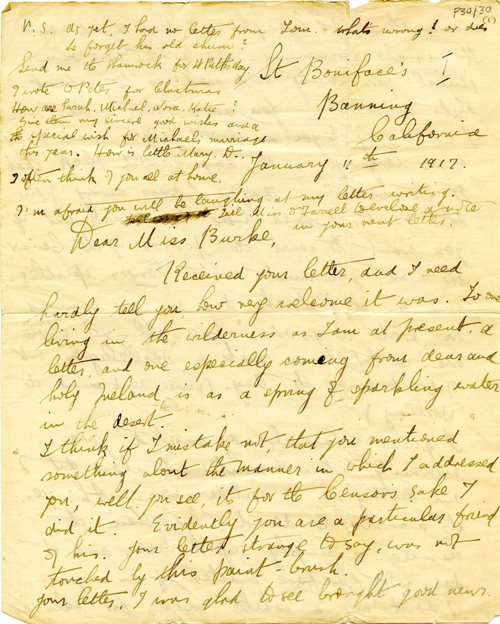 P30/30
(1)
P.S. As yet, I had no letter from Tom. Whats wrong? or did
he forget his old chum?
Send me the Shamrock for St Pats day
I wrote to Peter for Christmas
How are Sarah, Michael, Nora, Katie?
Give them my sincere good wishes and a
special wish for Michaels marriage
this year. How is little Mary D..
I often think of you all at home.
I'm afraid you will be laughing at my letter writing.
Tell Miss O'Farrell to enclose a note
in your next letter.
St Boniface's
I
Banning
California
January 11th 1917.
Dear Miss Burke,
Received your letter, and I need
hardly tell you, how very welcome it was. To one
living in the wilderness as I am at present. a
letter, and one especially coming from dear and
holy Ireland, is as a spring of sparkling water
in the desert.
I think if I mistake not, that you mentioned
something about the manner in which I addressed
you, well you see, it for the Censors sake I
did it. Evidently you are a particular friend
of his. Your letter, strange to say, was not
touched by this paint brush.
Your letter, I was glad to see brought good news.